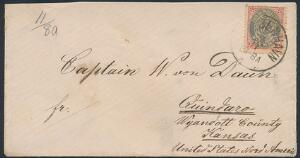 11/89
HAVN
Captain W. von Daun
fr.
Quindaro
Wyandott County
Kansas
United States Nord Amerika